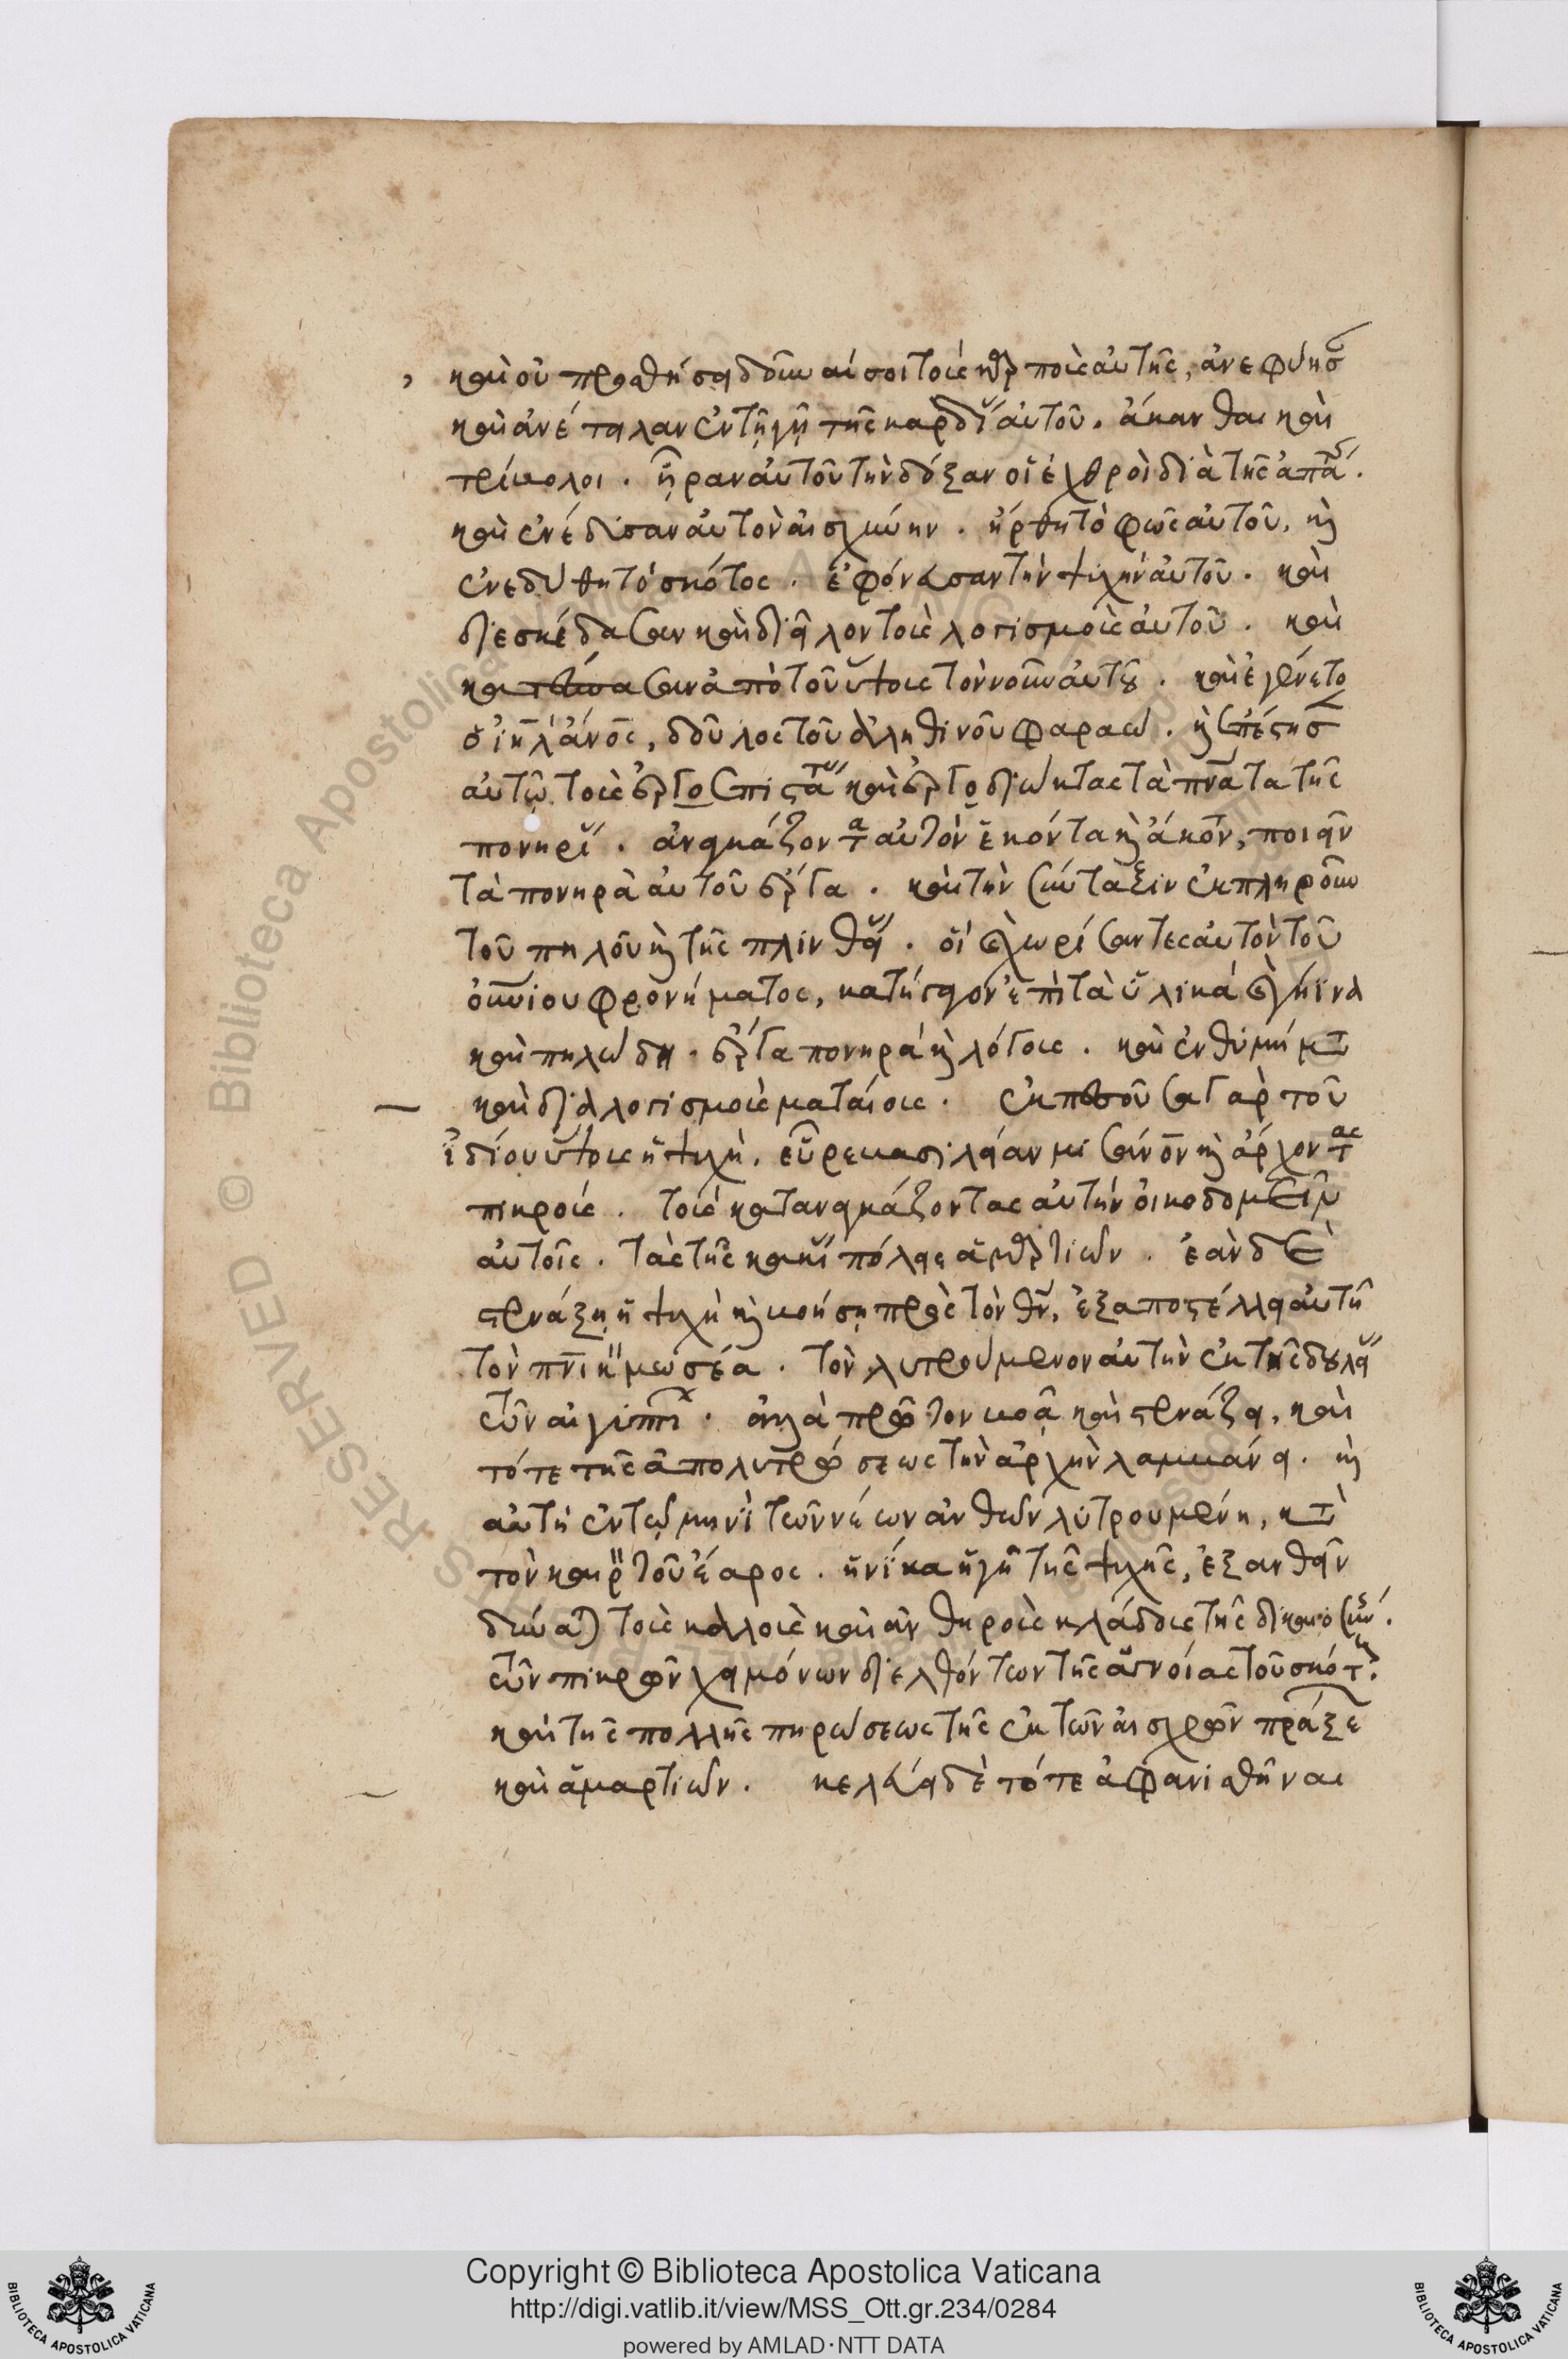 καὶ οὐ προσθήσει δοῦναί σοι τοὺς καρποὺς αὐτῆς, ἀνεφύησ
καὶ ἀνέτειλαν ἐν τῇ γῇ τῆς καρδί αὐτοῦ. ἄκανθαι καὶ
τρίβολοι. ἦραν αὐτοῦ τὴν δόξαν οἱ ἐχθροὶ διὰ τῆς ἀπά.
καὶ ἐνέδυσαν αὐτὸν αἰσχύνην. ἤρθη τὸ φῶς αὐτοῦ, κὶ
ἐνεδύθη τὸ σκότος. ἐφόνευσαν τὴν ψυχὴν αὐτοῦ. καὶ
διεσκέδασαν καὶ διεῖλον τοὺς λογισμοὺς αὐτοῦ. καὶ
κατέβασαν ἀπὸ τοῦ ὕψους τὸν νοῦν αὐτοῦ. καὶ ἐγένετο
ὁ ἰηλ ἄνος, δοῦλος τοῦ ἀληθινοῦ φαραώ. κὶ ἐπέστησ
αὐτῷ τοὺς ἐργο ἐπιστά καὶ ἐργοδιώκτας τὰ πνατα τῆς
πονηρί. ἀναγκάζοντα αὐτὸν ἑκόντα κὶ ἄκον, ποιεῖν
τὰ πονηρὰ αὐτοῦ ἔργα. καὶ τὴν σύνταξιν ἐκπληροῦν
τοῦ πηλοῦ κὶ τῆς πλινθεί. οἳ χωρίσαντες αὐτὸν τοῦ
οὐνίου φρονήματος, κατήγαγον ἐπὶ τὰ ὑλικὰ γήϊνα
καὶ πηλώδη. ἔργα πονηρά κὶ λόγους. καὶ ἐνθυμήματ
καὶ διαλογισμοὺς ματαίους. ἐκπεσοῦσα γὰρ τοῦ
ἰδίου ὕψους ἡ ψυχὴ, εὗρε βασιλείαν μισάνον κὶ ἄρχοντας
πικρούς. τοὺς καταναγκάζοντας αὐτὴν οἰκοδομεῖν
αὐτοῖς. τὰς τῆς κακί πόλεις ἁμαρτιῶν. ἐὰν δὲ
στενάξῃ ἡ ψυχὴ κὶ βοήσῃ πρὸς τὸν θν, ἐξαποστέλλει αὐτῇ
τὸν πνικ μωσέα. τὸν λυτρούμενον αὐτὴν ἐκ τῆς δουλεί
τῶν αἰγυπτ. ἀλλὰ πρῶτον βοᾷ καὶ στενάζει, καὶ
τότε τῆς ἀπολυτρώσεως τὴν ἀρχὴν λαμβάνει. κὶ
αὐτὴ ἐν τῷ μηνὶ τῶν νέων ἀνθῶν λυτρουμένη, κατὰ
τὸν καιρ τοῦ ἔαρος. ἡνίκα ἡ γῆ τῆς ψυχῆς, ἐξανθεῖν
δύναται τοὺς καλοὺς καὶ ἀνθηροὺς κλάδους τῆς δικαιοσύν.
τῶν πικρῶν χειμόνων διελθόντων τῆς ἀγνοίας τοῦ σκότ.
καὶ τῆς πολλῆς πηρώσεως τῆς ἐκ τῶν αἰσχρῶν πράξε
καὶ ἁμαρτιῶν. κελεύει δὲ τότε ἀφανισθῆναι
Copyright © Biblioteca Apostolica Vaticana
http://digi.vatlib.it/view/MSS_Ott.gr.234/0284
powered by AMLAD·NTT DATA